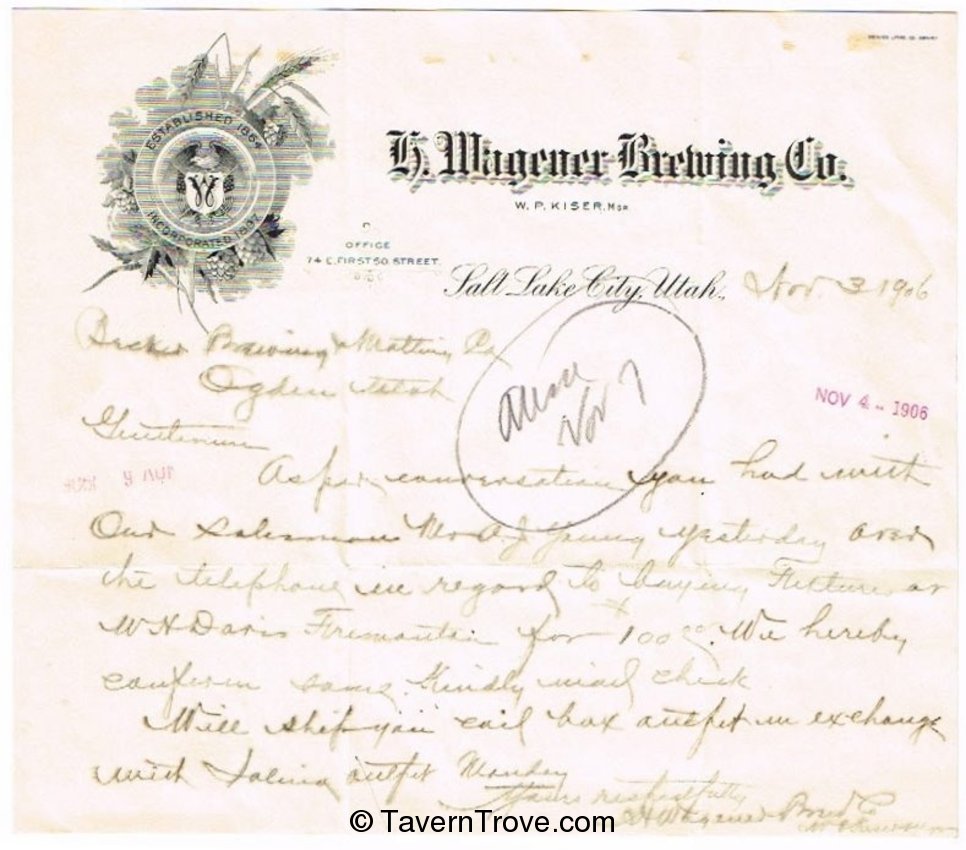 ESTABLISHED 1864
INCORPORATED 1897
W
H. Wagener Brewing Co.
W. P. KISER, MGR.
OFFICE
74 E. FIRST SO. STREET.
Salt Lake City, Utah., Nov. 3 1906
Becker Brewing & Malting Co
Ogden Utah
Nov 7
NOV 4 - 1906
Gentlemen
As per conversation you had with
Our salesman Mr A. J. Young yesterday over
the telephone in regard to buying Fixtures at
W H Davis Fremont for $100.00. We hereby
confirm same. Kindly mail check
Will ship you coil box outfit in exchange
with Salina outfit Monday
Yours respectfully
H Wagener Brew Co
© TavernTrove.com